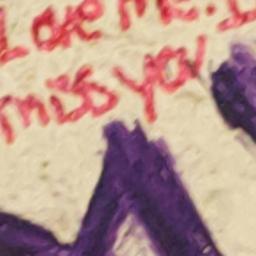 Love me. I
miss you